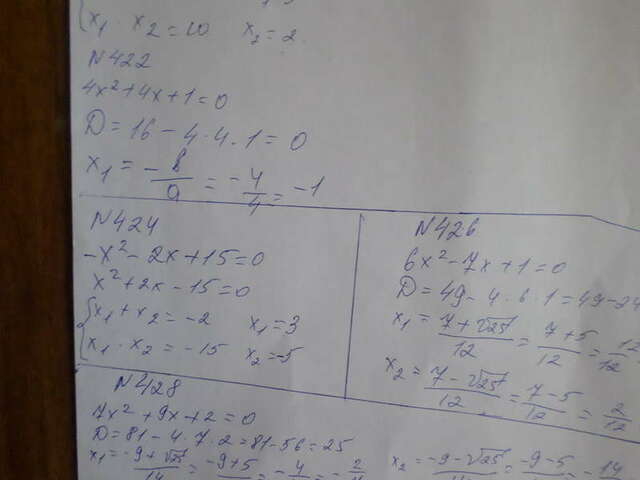 x₁ · x₂ = 10 x₂ = 2
N422
4x² + 4x + 1 = 0
D = 16 - 4 · 4 · 1 = 0
x₁ = -8/9 = -4/4 = -1
N424
-x² - 2x + 15 = 0
x² + 2x - 15 = 0
x₁ + x₂ = -2 x₁ = 3
x₁ · x₂ = -15 x₂ = -5
N426
6x² - 7x + 1 = 0
D = 49 - 4 · 6 · 1 = 49 - 24
x₁ = (7 + √25)/12 = (7 + 5)/12 = 12/12
x₂ = (7 - √25)/12 = (7 - 5)/12 = 2/12
N428
7x² + 9x + 2 = 0
D = 81 - 4 · 7 · 2 = 81 - 56 = 25
x₁ = (-9 + √25)/14 = -9 + 5 = -4 = -2
x₂ = -9 - √25 = -9 - 5 = -14